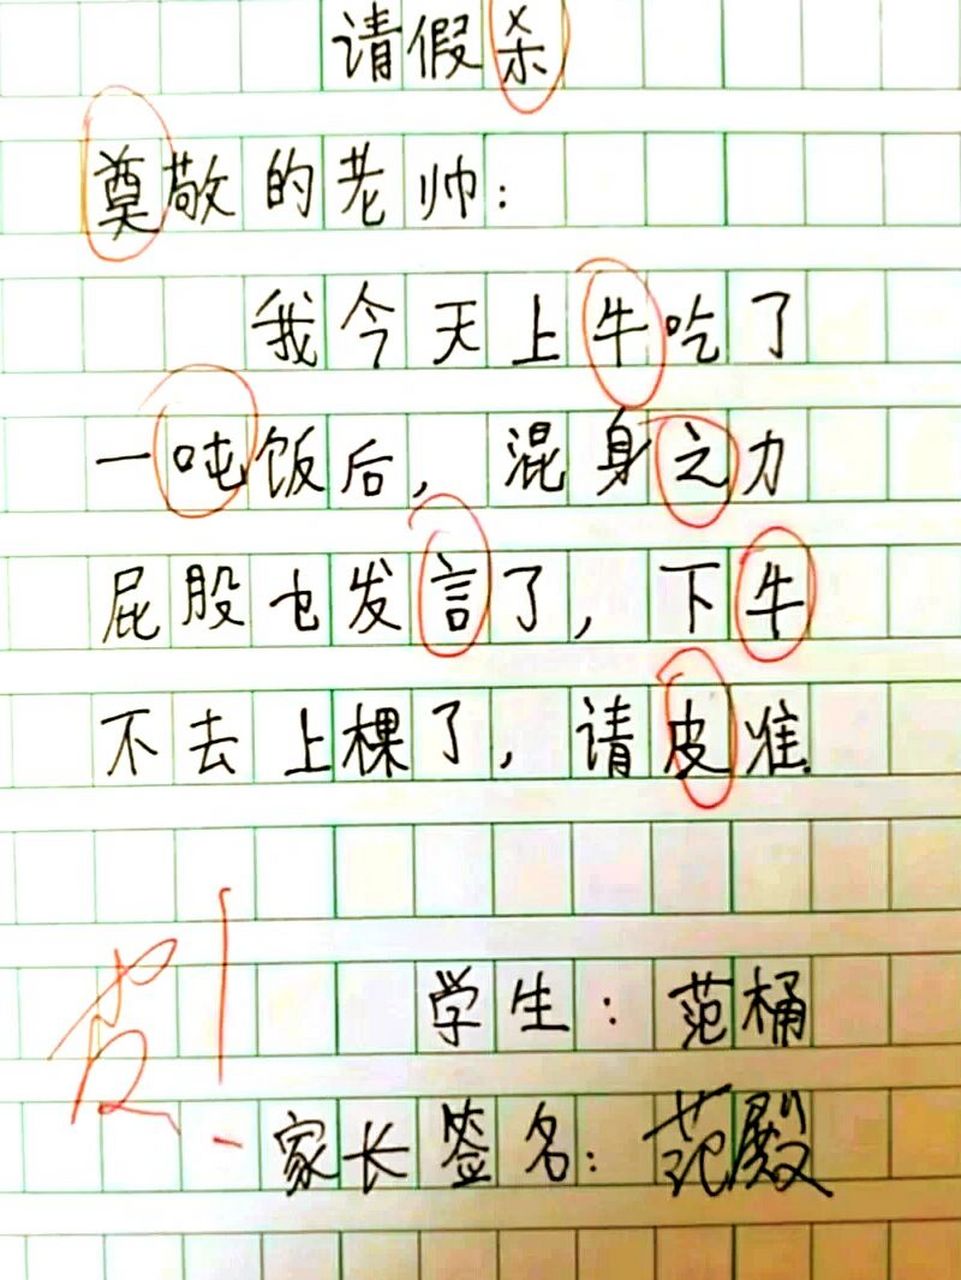 请假杀
奠敬的老帅:
我今天上牛吃了
一吨饭后, 混身之力
屁股也发言了, 下牛
不去上棵了, 请皮准.
学生: 范桶
家长签名: 范殿